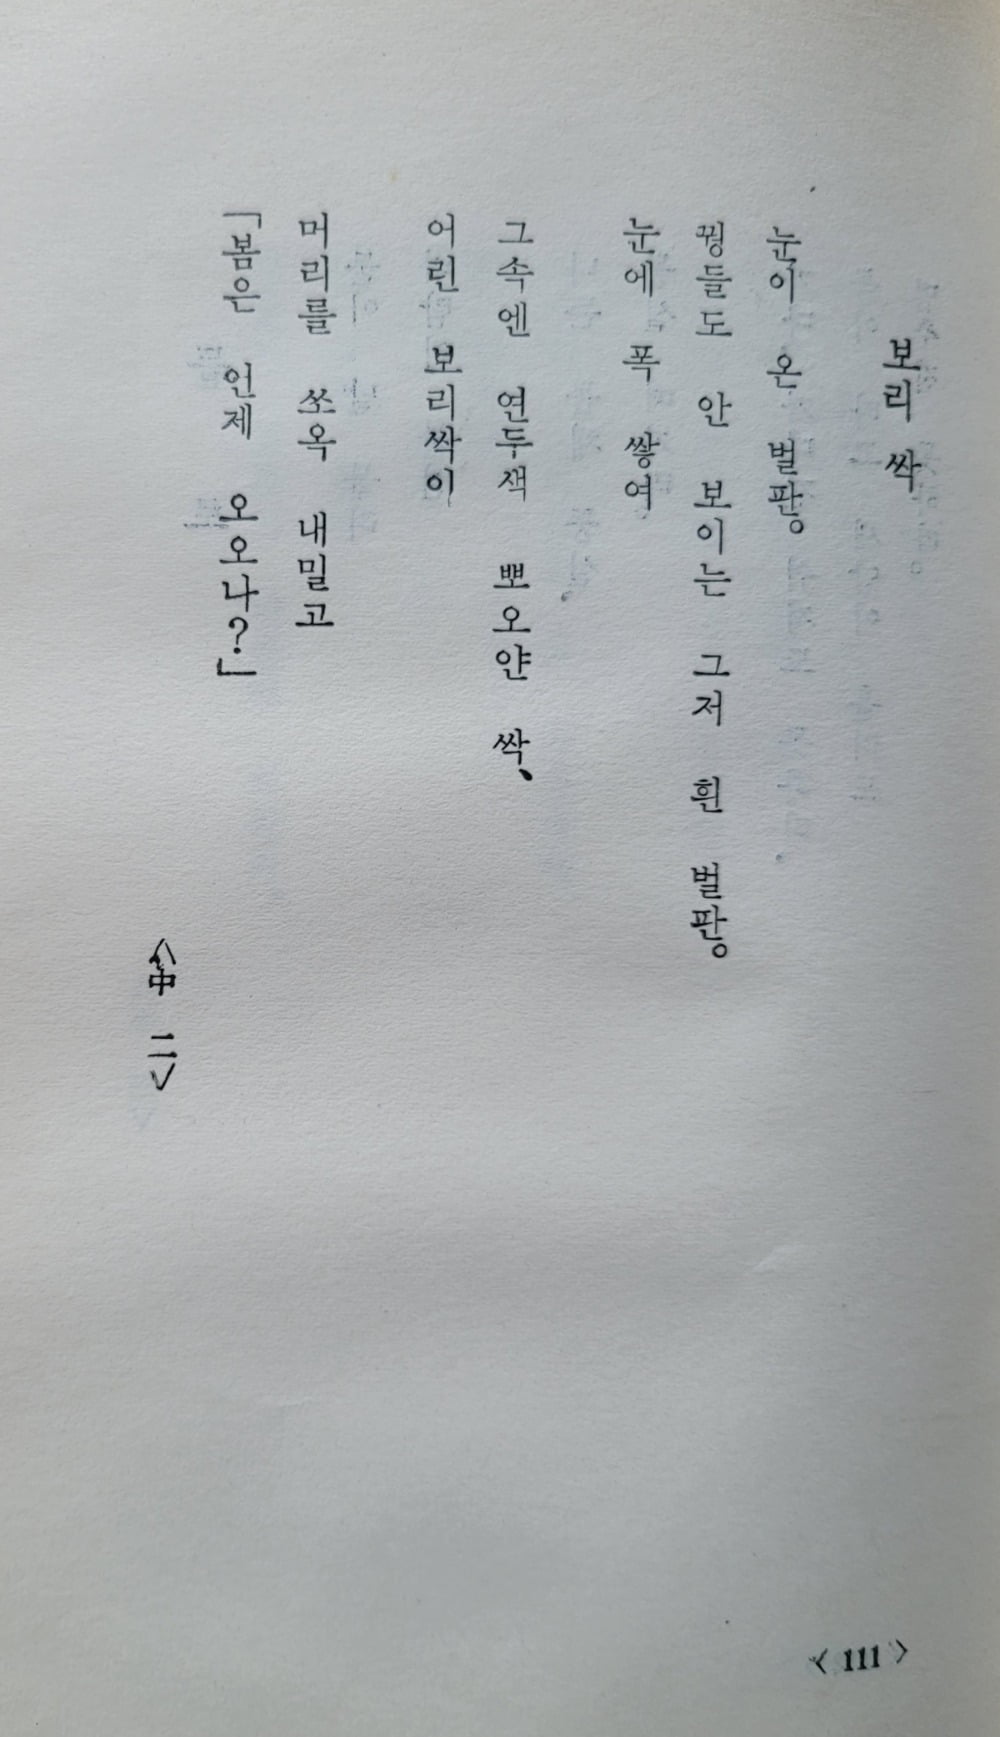 보리 싹
눈이 온 벌판。
꿩들도 안 보이는 그저 흰 벌판。
눈에 폭 쌓여
그 속엔 연두색 뽀오얀 싹、
어린 보리싹이
머리를 쏘옥 내밀고
「봄은 언제 오오나?」
〈中 二〉
〈 111 〉